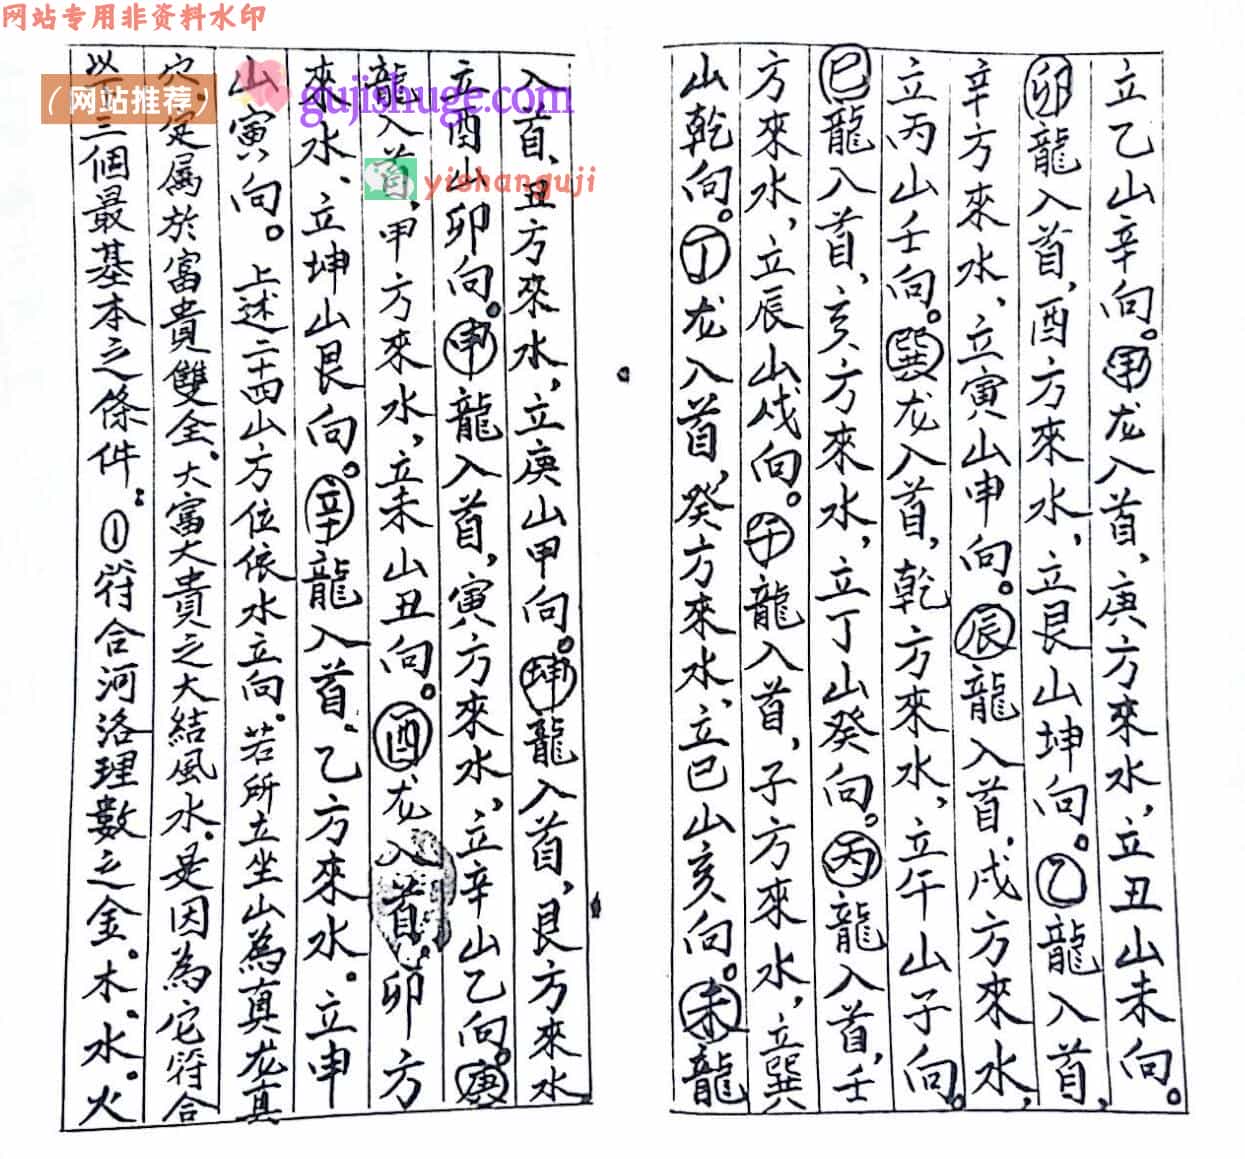 网站专用非资料水印
立乙山辛向。甲龙入首，庚方來水，立丑山未向。
卯龍入首，酉方來水，立艮山坤向。乙龍入首，
辛方來水，立寅山申向。辰龍入首，戌方來水，
立丙山壬向。巽龙入首，乾方來水，立午山子向。
巳龍入首，亥方來水，立丁山癸向。丙龍入首，壬
方來水，立辰山戌向。午龍入首，子方來水，立巽
山乾向。丁龙入首，癸方來水，立巳山亥向。未龍
入首，丑方來水，立庚山甲向。坤龍入首，艮方來水
立酉山卯向。申龍入首，寅方來水，立辛山乙向。庚
龍入首，甲方來水，立未山丑向。酉龙入首，卯方
來水、立坤山艮向。辛龍入首、乙方來水。立申
山寅向。上述二十四山方位依水立向。若所立坐山為真龙真
穴，定屬於富貴雙全、大富大貴之大結風水。是因為它符合
三個最基本之條件：①符合河洛理數之金。木。水。火
（网站推荐）
gujishuge.com
yishanguji